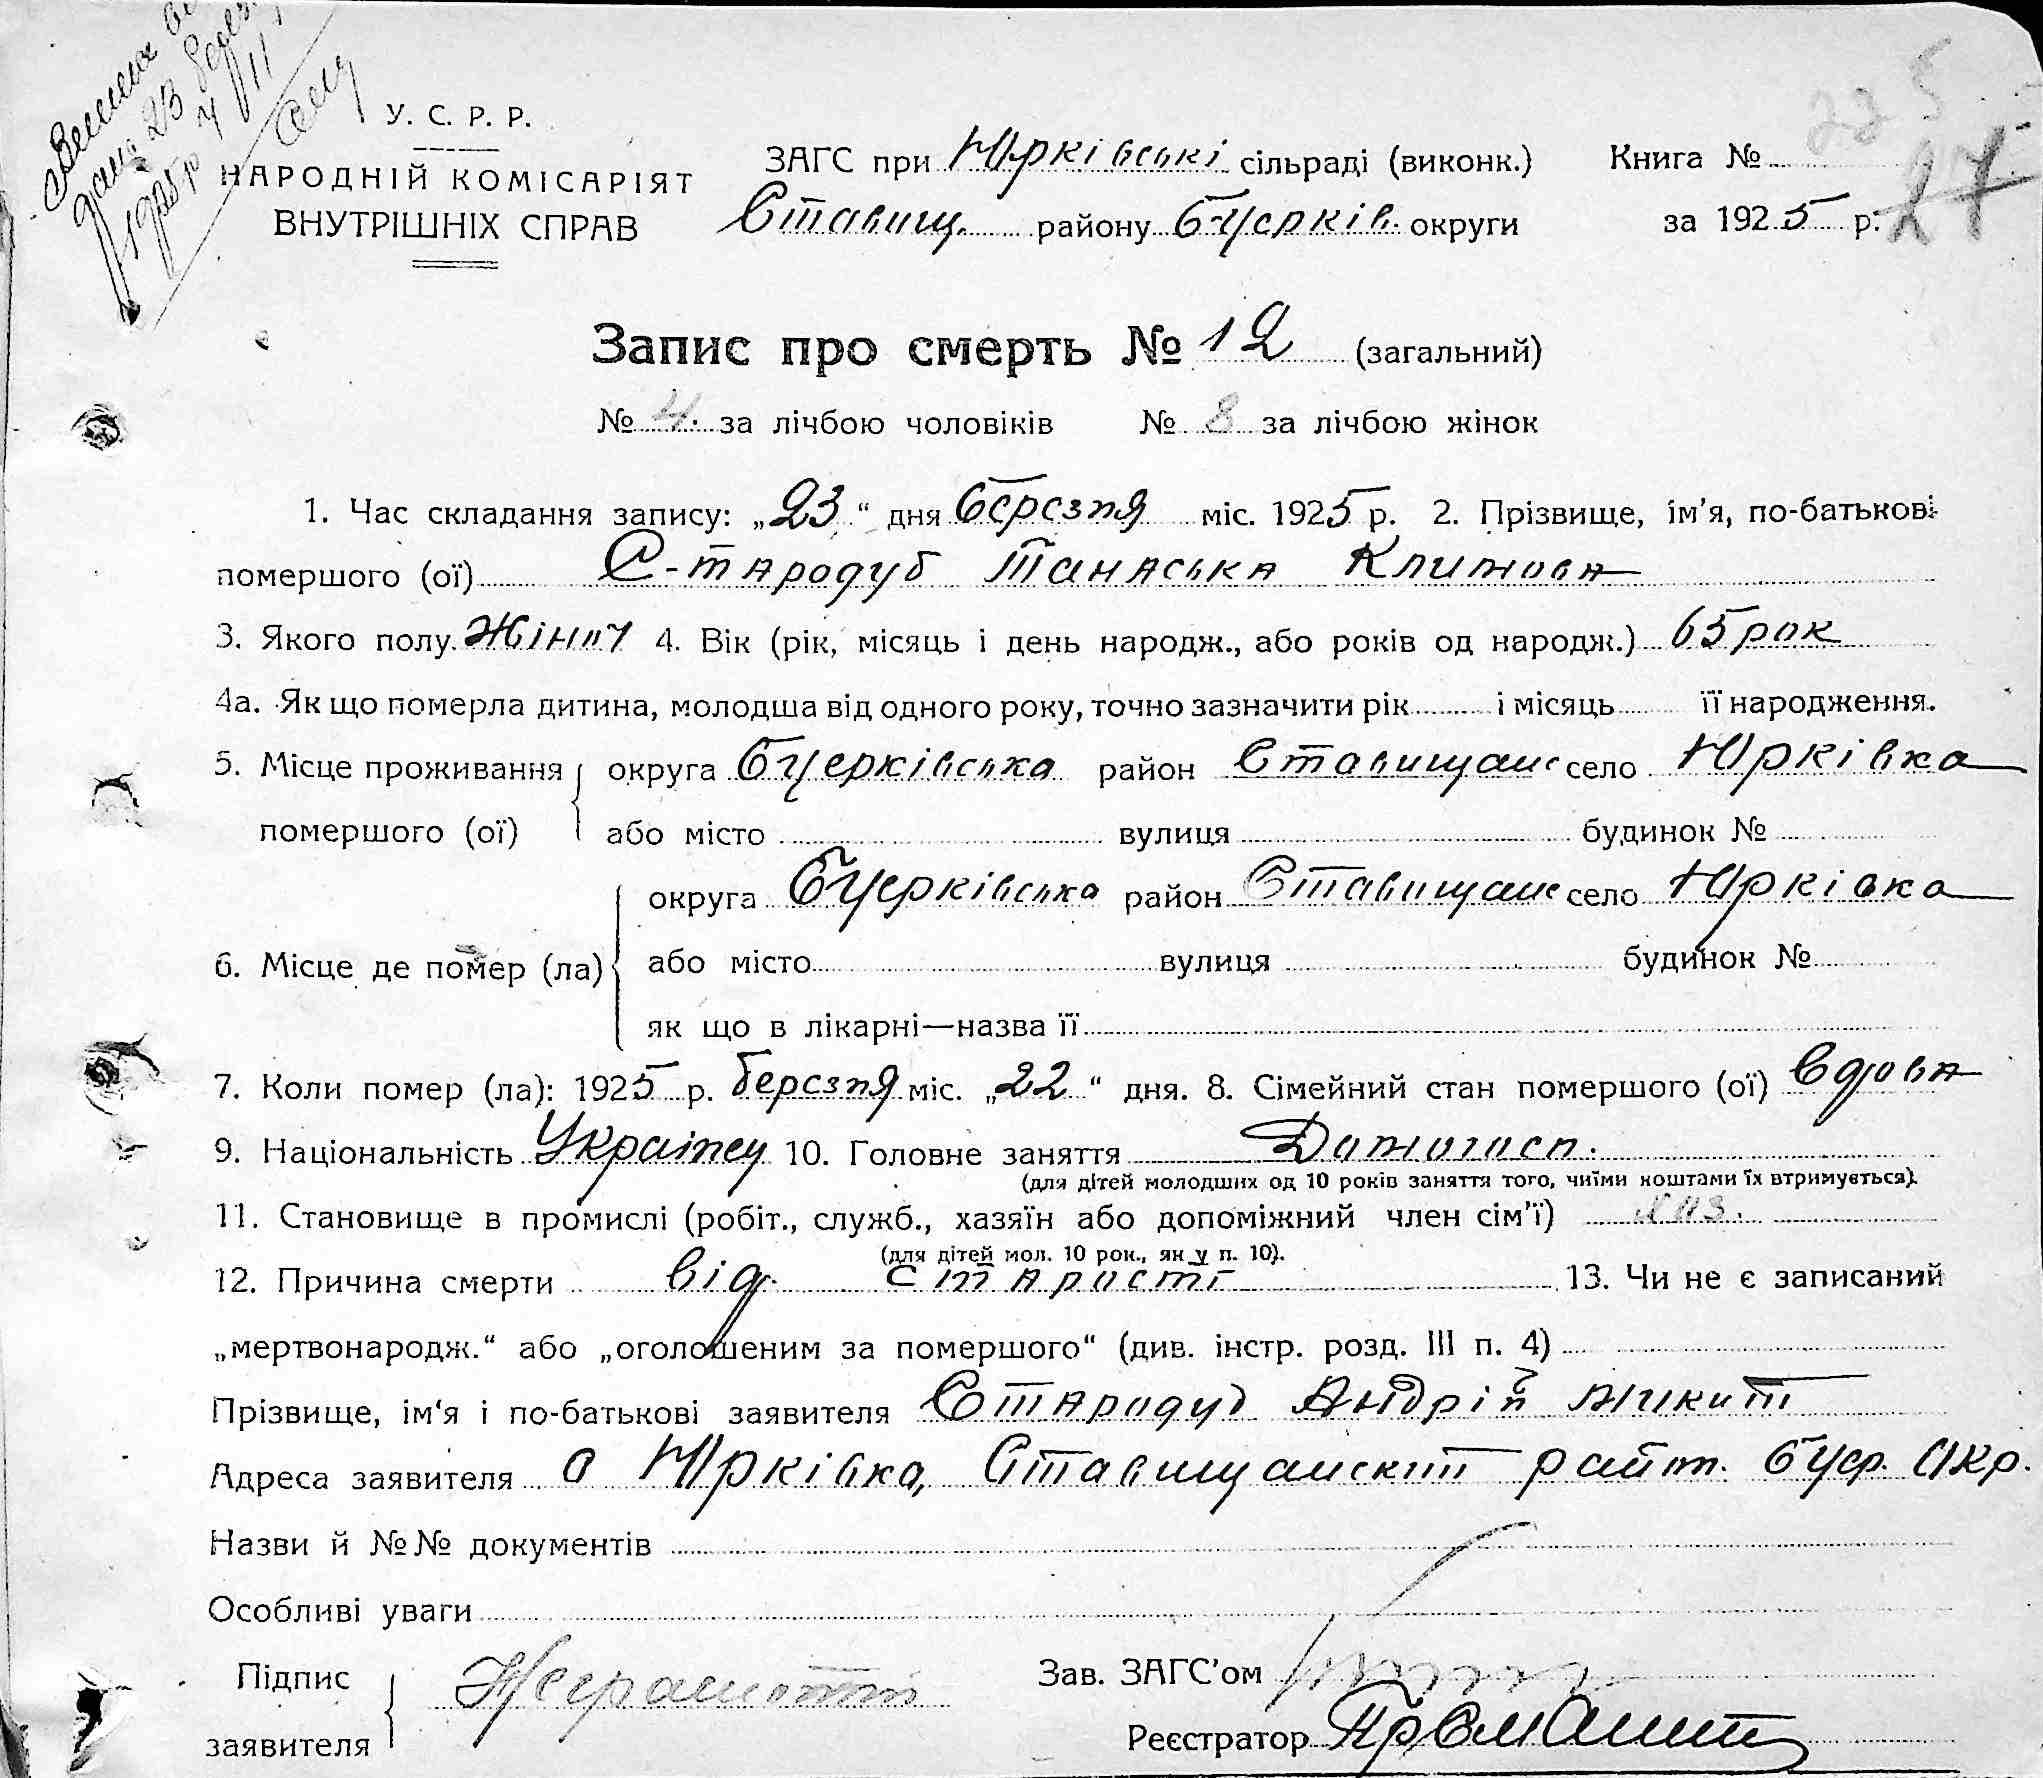 Випись
дана 23 берез.
1925 р
У. С. Р. Р.
НАРОДНІЙ КОМІСАРІЯТ
ВНУТРІШНІХ СПРАВ
ЗАГС при Юрківські сільраді (виконк.)
Ставищ. району Бцерків. округи
Книга №
за 1925 р.
27
Запис про смерть № 12 (загальний)
№ 4. за лічбою чоловіків № 8 за лічбою жінок
1. Час складання запису: „23“ дня березня міс. 1925 р. 2. Прізвище, ім'я, по-батькові
помершого (ої) Стародуб Танаська Климова
3. Якого полу Жіноч 4. Вік (рік, місяць і день народж., або років од народж.) 65 рок
4а. Як що померла дитина, молодша від одного року, точно зазначити рік і місяць її народження.
5. Місце проживання округа Бцерківська район Ставищанс село Юрківка
помершого (ої) або місто вулиця будинок №
округа Бцерківська район Ставищанс село Юрківка
6. Місце де помер (ла) або місто вулиця будинок №
як що в лікарні—назва її
7. Коли помер (ла): 1925 р. березня міс. „22“ дня. 8. Сімейний стан помершого (ої) вдова
9. Національність Українец 10. Головне заняття Домогосп.
(для дітей молодших од 10 років заняття того, чиїми коштами їх втримується).
11. Становище в промислі (робіт., служб., хазяїн або допоміжний член сім'ї) хаз.
(для дітей мол. 10 рок., як у п. 10).
12. Причина смерти від старости 13. Чи не є записаний
„мертвонародж.“ або „оголошеним за помершого“ (див. інстр. розд. III п. 4)
Прізвище, ім'я і по-батькові заявителя Стародуб Андрій Микит
Адреса заявителя с Юрківка, Ставищанский район. бцер. окр.
Назви й №№ документів
Особливі уваги
Підпис
заявителя
Неграмотни
Зав. ЗАГС'ом
Реєстратор